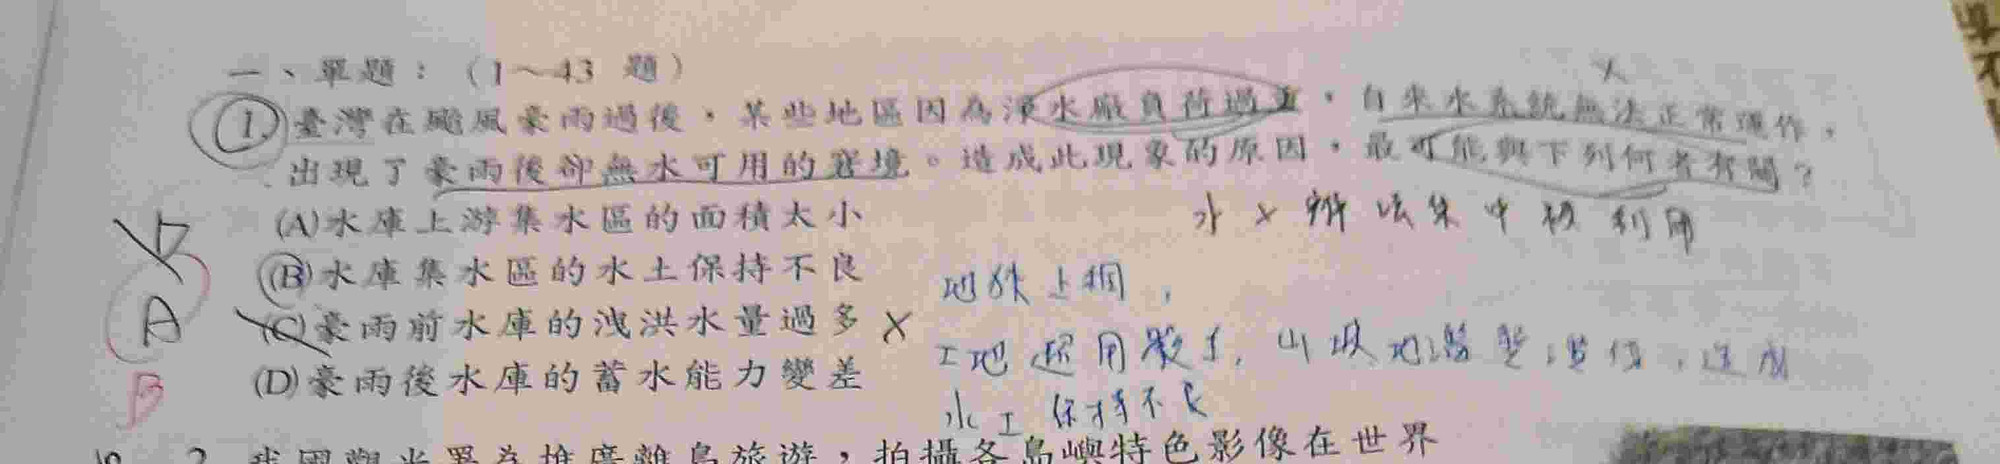 一、單題：（1～43 題）
1.臺灣在颱風豪雨過後，某些地區因為淨水廠負荷過重，自來水系統無法正常運作，
出現了豪雨後卻無水可用的窘境。造成此現象的原因，最可能與下列何者有關？
(A)水庫上游集水區的面積太小
水 X 辦法集中被利用
(B)水庫集水區的水土保持不良
(C)豪雨前水庫的洩洪水量過多 X
A
(D)豪雨後水庫的蓄水能力變差
B
水土保持不良
2. 我國觀光署為推廣離島旅遊，拍攝各島嶼特色影像在世界